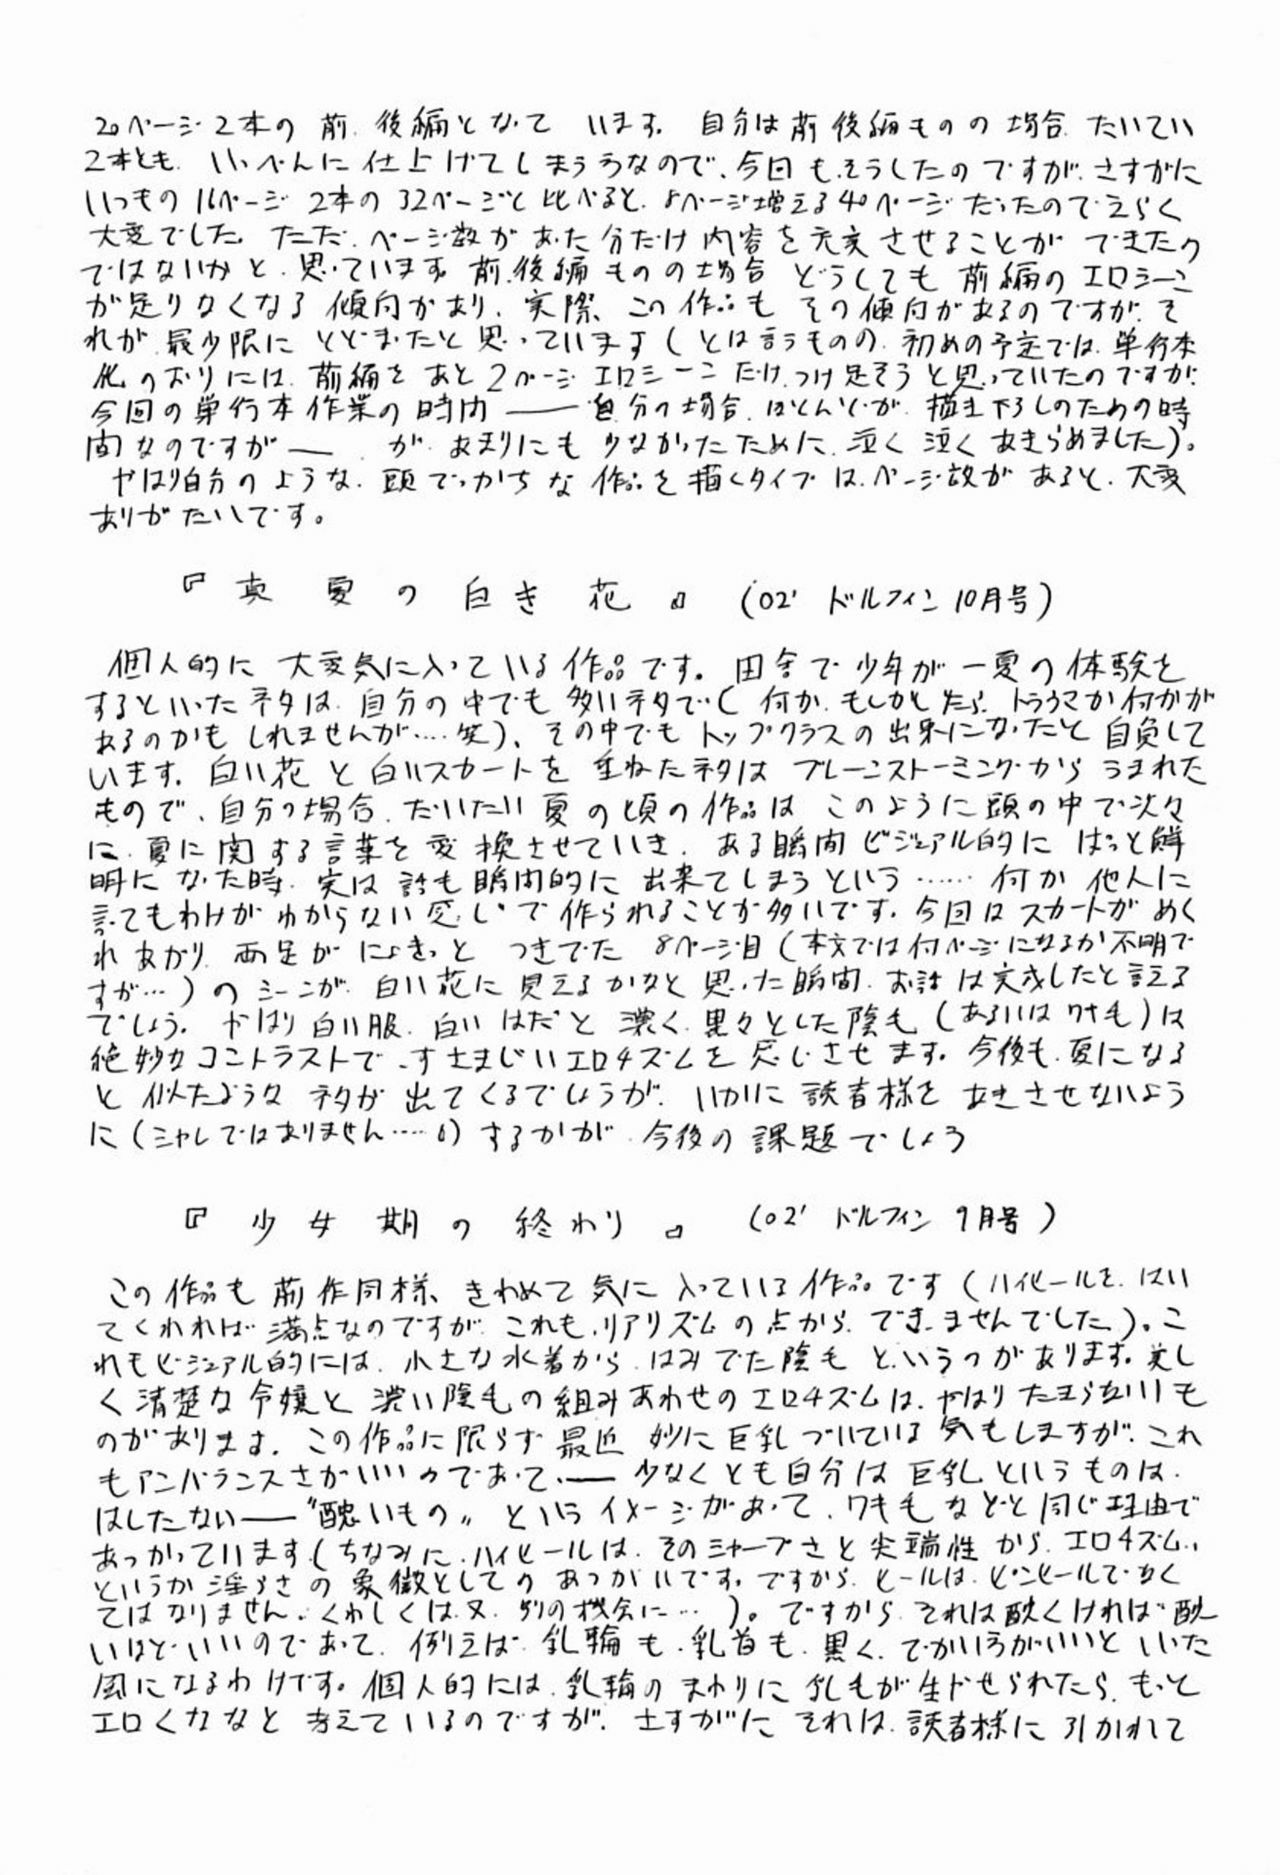 20ページ2本の前、後編となっています。自分は前後編ものの場合、たいてい
2本とも、いっぺんに仕上げてしまうようなので、今回もそうしたのですが、さすがに
いつもの16ページ2本の32ページと比べると、8ページ増える40ページだったのでえらく
大変でした。ただ、ページ数があった分だけ内容を充実させることができたの
ではないかと、思っています。前、後編ものの場合どうしても前編のエロシーン
が足りなくなる傾向があり、実際、この作品もその傾向があるのですが、そ
れが、最少限にとどまったと思っています(とは言うものの、初めの予定では、単行本
化のおりには、前編をあと2ページエロシーンだけ、つけ足そうと思っていたのですが、
今回の単行本作業の時間――自分の場合、ほとんどが、描き下ろしのための時
間なのですが――が、あまりにも少なかったために、泣く泣くあきらめました)。
やはり自分のような、頭でっかちな作品を描くタイプは、ページ数があると、大変
ありがたいです。
『真夏の白き花』(02' ドルフィン10月号)
個人的に大変気に入っている作品です。田舎で少年が一夏の体験を
するといったネタは、自分の中でも多いネタで(何か、もしかしたら、トラウマか何かが
あるのかもしれませんが‥‥笑)、その中でもトップクラスの出来になったと自負して
います。白い花と白いスカートを重ねたネタはブレーンストーミングからうまれた
もので、自分の場合、だいたい夏の頃の作品はこのように頭の中で次々
に、夏に関する言葉を変換させていき、ある瞬間ビジュアル的にぱっと鮮
明になった時、実は話も瞬間的に出来てしまうという……何か他人に
言ってもわけがわからない感じで作られることが多いです。今回はスカートがめく
れあがり、両足がにょきっとつきでた8ページ目(本文では何ページになるか不明で
すが…)のシーンが、白い花に見えるかなと思った瞬間、お話は完成したと言える
でしょう。やはり白い服、白いはだと濃く、黒々とした陰毛(あるいはワキ毛)は
絶妙なコントラストで、すさまじいエロチズムを感じさせます。今後も、夏になる
と似たようなネタが出てくるでしょうが、いかに読者様をあきさせないよう
に(シャレではありません‥‥)するかが、今後の課題でしょう
『少女期の終わり』(02' ドルフィン9月号)
この作品も前作同様、きわめて気に入っている作品です(ハイヒールを、はい
てくれれば満点なのですが、これも、リアリズムの点から、できませんでした)。こ
れもビジュアル的には、小さな水着から、はみでた陰毛というのがあります。美し
く清楚な令嬢と濃い陰毛の組みあわせのエロチズムは、やはりたまらないも
のがあります。この作品に限らず最近妙に巨乳づいている気もしますが、これ
もアンバランスさがいいのであって、――少なくとも自分は巨乳というものは、
はしたない――〝醜いもの〟というイメージがあって、ワキ毛などと同じ理由で
あつかっています(ちなみに、ハイヒールは、そのシャープさと尖端性から、エロチズム、
というか淫らさの象徴としてのあつかいです。ですから、ヒールは、ピンヒールでなく
てはなりません。くわしくは、又、別の機会に…)。ですから、それは醜くければ醜
いほどいいのであって、例えば、乳輪も、乳首も、黒く、でかいほうがいいといった
風になるわけです。個人的には、乳輪のまわりに乳毛が生やせられたら、もっと
エロくなるなと考えているのですが、さすがにそれは、読者様に引かれて